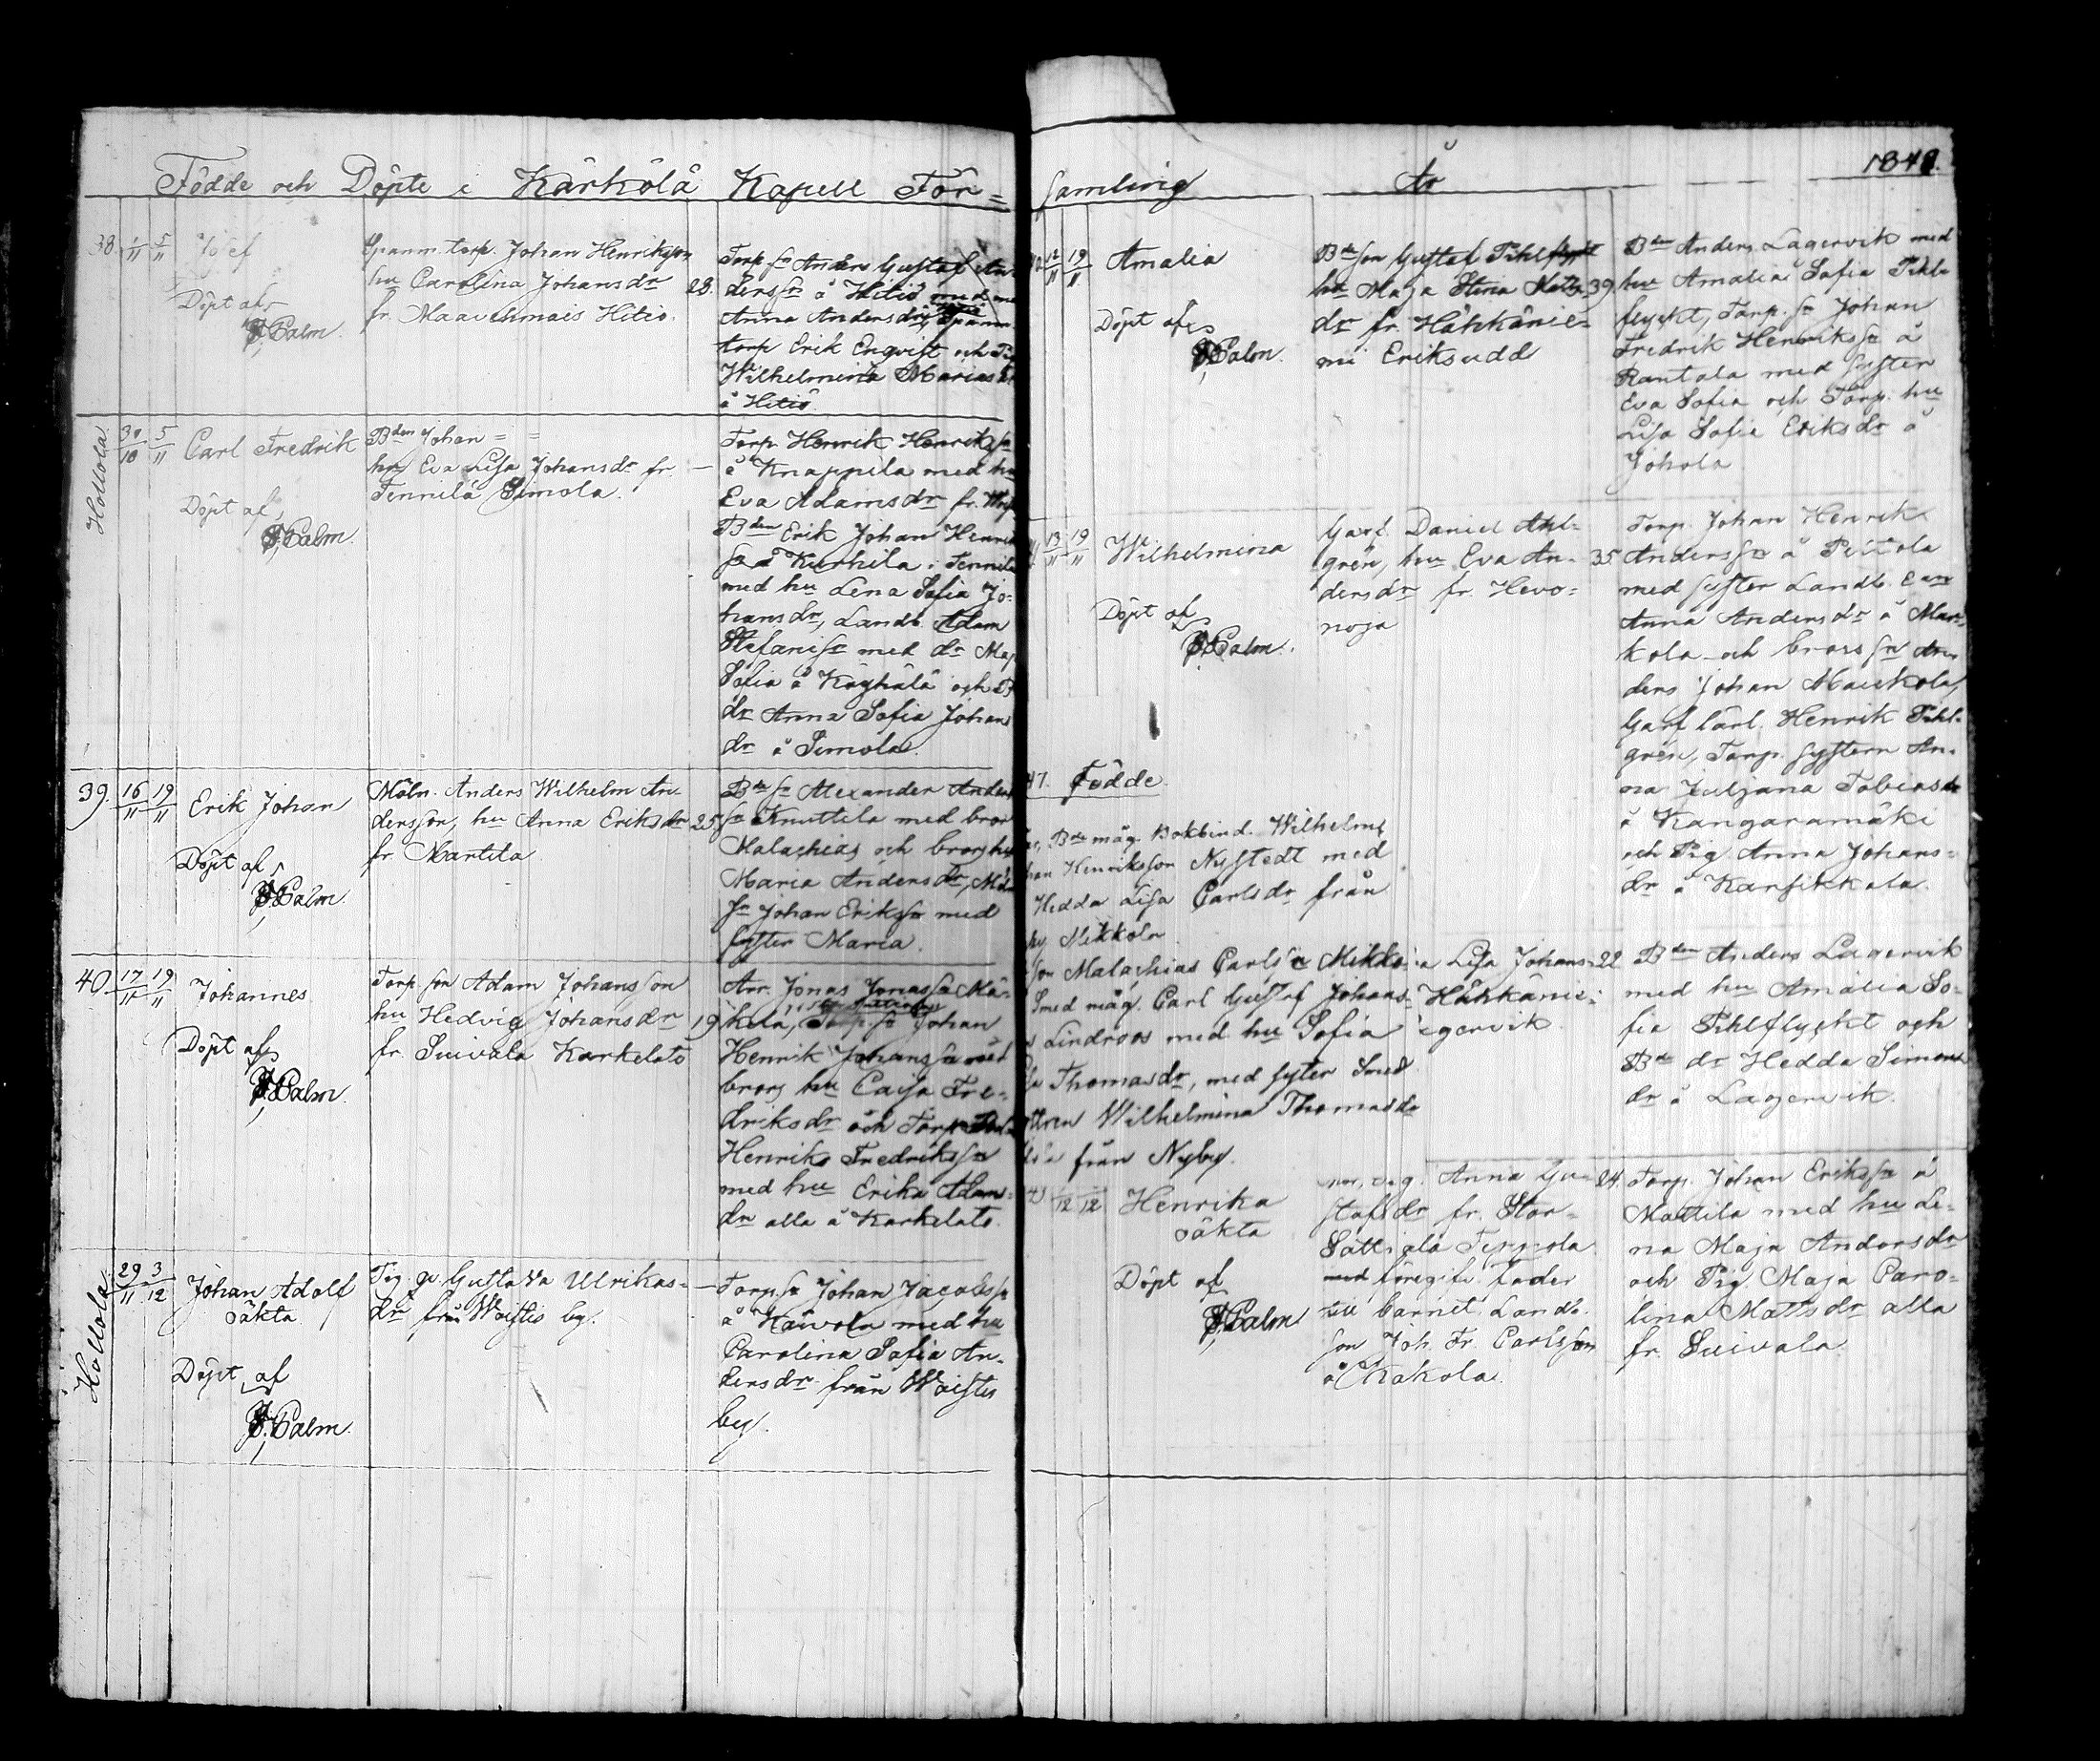 Födde och Döpte i Kärkölä Kapell För=
38. 1/11 5/11 Josef
Döpt af
Palm.
Spanm. torp. Johan Henriksson
hu Carolina Johansdr 28.
fr. Hitiö.
Torp sn Anders Gustaf An
derssn å Hitiö
Anna Andersdr, Spanm.
torp Erik Enqvist och Pig
Wilhelmina Marias dr
å Hitiö.
Hollola. 30/10 5/11 Carl Fredrik
Döpt af,
Palm.
Bden Johan = =
hu Eva Lisa Johansdr fr. —
Tennilä Simola.
Torp. Henrik Henrikssn
å Knappila med hu
Eva Adamsdr fr.
Bden Erik Johan Henrik
sn å Kurkila i Tennilä
med hu Lena Sofia Jo-
hansdr, Landb. Adam
Stefanisn med dr Maj
Sofia å och B
dr Anna Sofia Johans
dr å Simola.
39. 16/11 19/11 Erik Johan
Döpt af,
Palm.
Möln. Anders Wilhelm An-
dersson, hu Anna Eriksdr 25
fr. Martila.
Bde sn Alexander Anders
sn Knuttila med bror
Malachias och brors hu
Maria Andersdr, Möln
sn Johan Erikssn med
syster Maria.
40 17/11 19/11 Johannes
Döpt af
Palm.
Torp son Adam Johansson
hu Hedvig Johansdr 19
fr. Suivala Karkelato
Arr. Jonas Jonassn Mä-
kelä, Torp sn Johan
Henrik Johanssn med
brors hu Cajsa Fre-
driksdr och Torp
Henrik Fredrikssn
med hu Erika Adams-
dr alla å Karkelato.
Hollola. 29/11 3/12 Johan Adolf
oäkta
Döpt af
Palm.
Pig. qv. Gustava Ulrikas- —
dr från Woistis by.
Torp. sn Johan Jacobssn
å Koivola med hu
Carolina Sofia An-
dersdr från Woistis
by.
samling År 1848.
12/11 19/11 Amalia
Döpt af
Palm.
Bde son Gustaf Pihlflygt
hu Maja Stina Matts- 39
dr fr. Häkkänie-
mi Eriksudd
Bden Anders Lagervik med
hu Amalia Sofia Pihl-
flyckt, Torp. sn Johan
Fredrik Henrikssn å
Rantala med syster
Eva Sofia och Torp. hu
Lisa Sofia Eriksdr å
Johola
13/11 19/11 Wilhelmina
Döpt af
Palm.
Garf. Daniel Ahl-
gren, hu Eva An- 35
dersdr fr. Hevo-
noja
Torp. Johan Henrik
Anderssn å Peitola
med syster Landb. enk
Anna Andersdr å Mau-
kola och brors sn An
ders Johan Maukola,
Garf lärl. Henrik Pihl-
gren, Torp. systern An-
na Juljana Tobiasdr
å Kangaramäki
och Pig. Anna Johans-
dr å Karsikkala.
47. Födde.
Bde måg. Bokbind. Wilhelm
han Henriksson Nystedt med
Hedda Lisa Carlsdr från
Mikkola
son Malachias Carlsn Mikko
Smed måg. Carl Gustaf Johans-
Lindroos med hu Sofia
Thomasdr, med syster Smed
ttren Wilhelmina Thomasdr
från Nyby.
a Lisa Johans- 22
Häkkänie-
gervik.
Bden Anders Lagervik
med hu Amalia So-
fia Pihlflyckt och
Bde dr Hedda Simons
dr å Lagervik.
/12 /12 Henrika
oäkta
Döpt af
Palm
Anna Gu- 24.
stafsdr fr. Stor-
Sattiala Teppola
med föregifv. fader
till barnet Landb.
son Joh. Fr. Carlsson
å Kakola.
Torp. Johan Erikssn å
Mattila med hu Le-
na Maja Andersdr
och Pig. Maja Caro-
lina Mattsdr alla
fr. Suivala